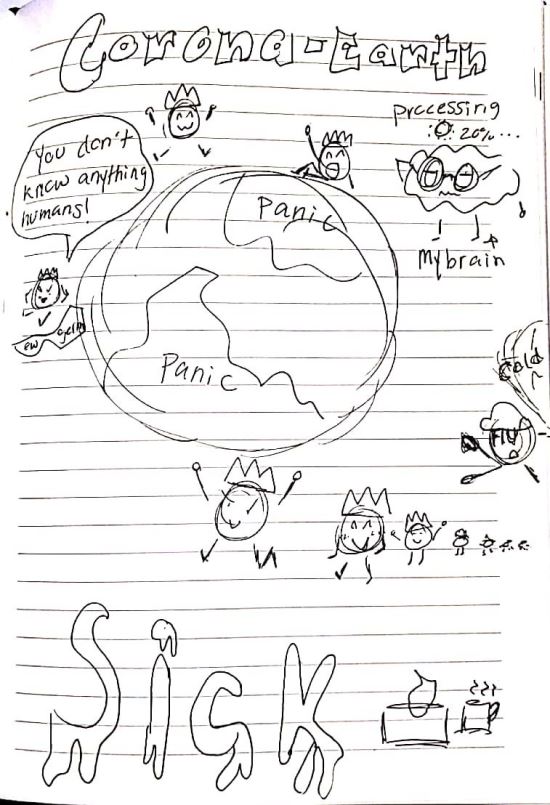 Corona-Earth
processing
20%...
You don't
know anything
humans!
Panic
My brain
Panic
Cold
Flu
Sick